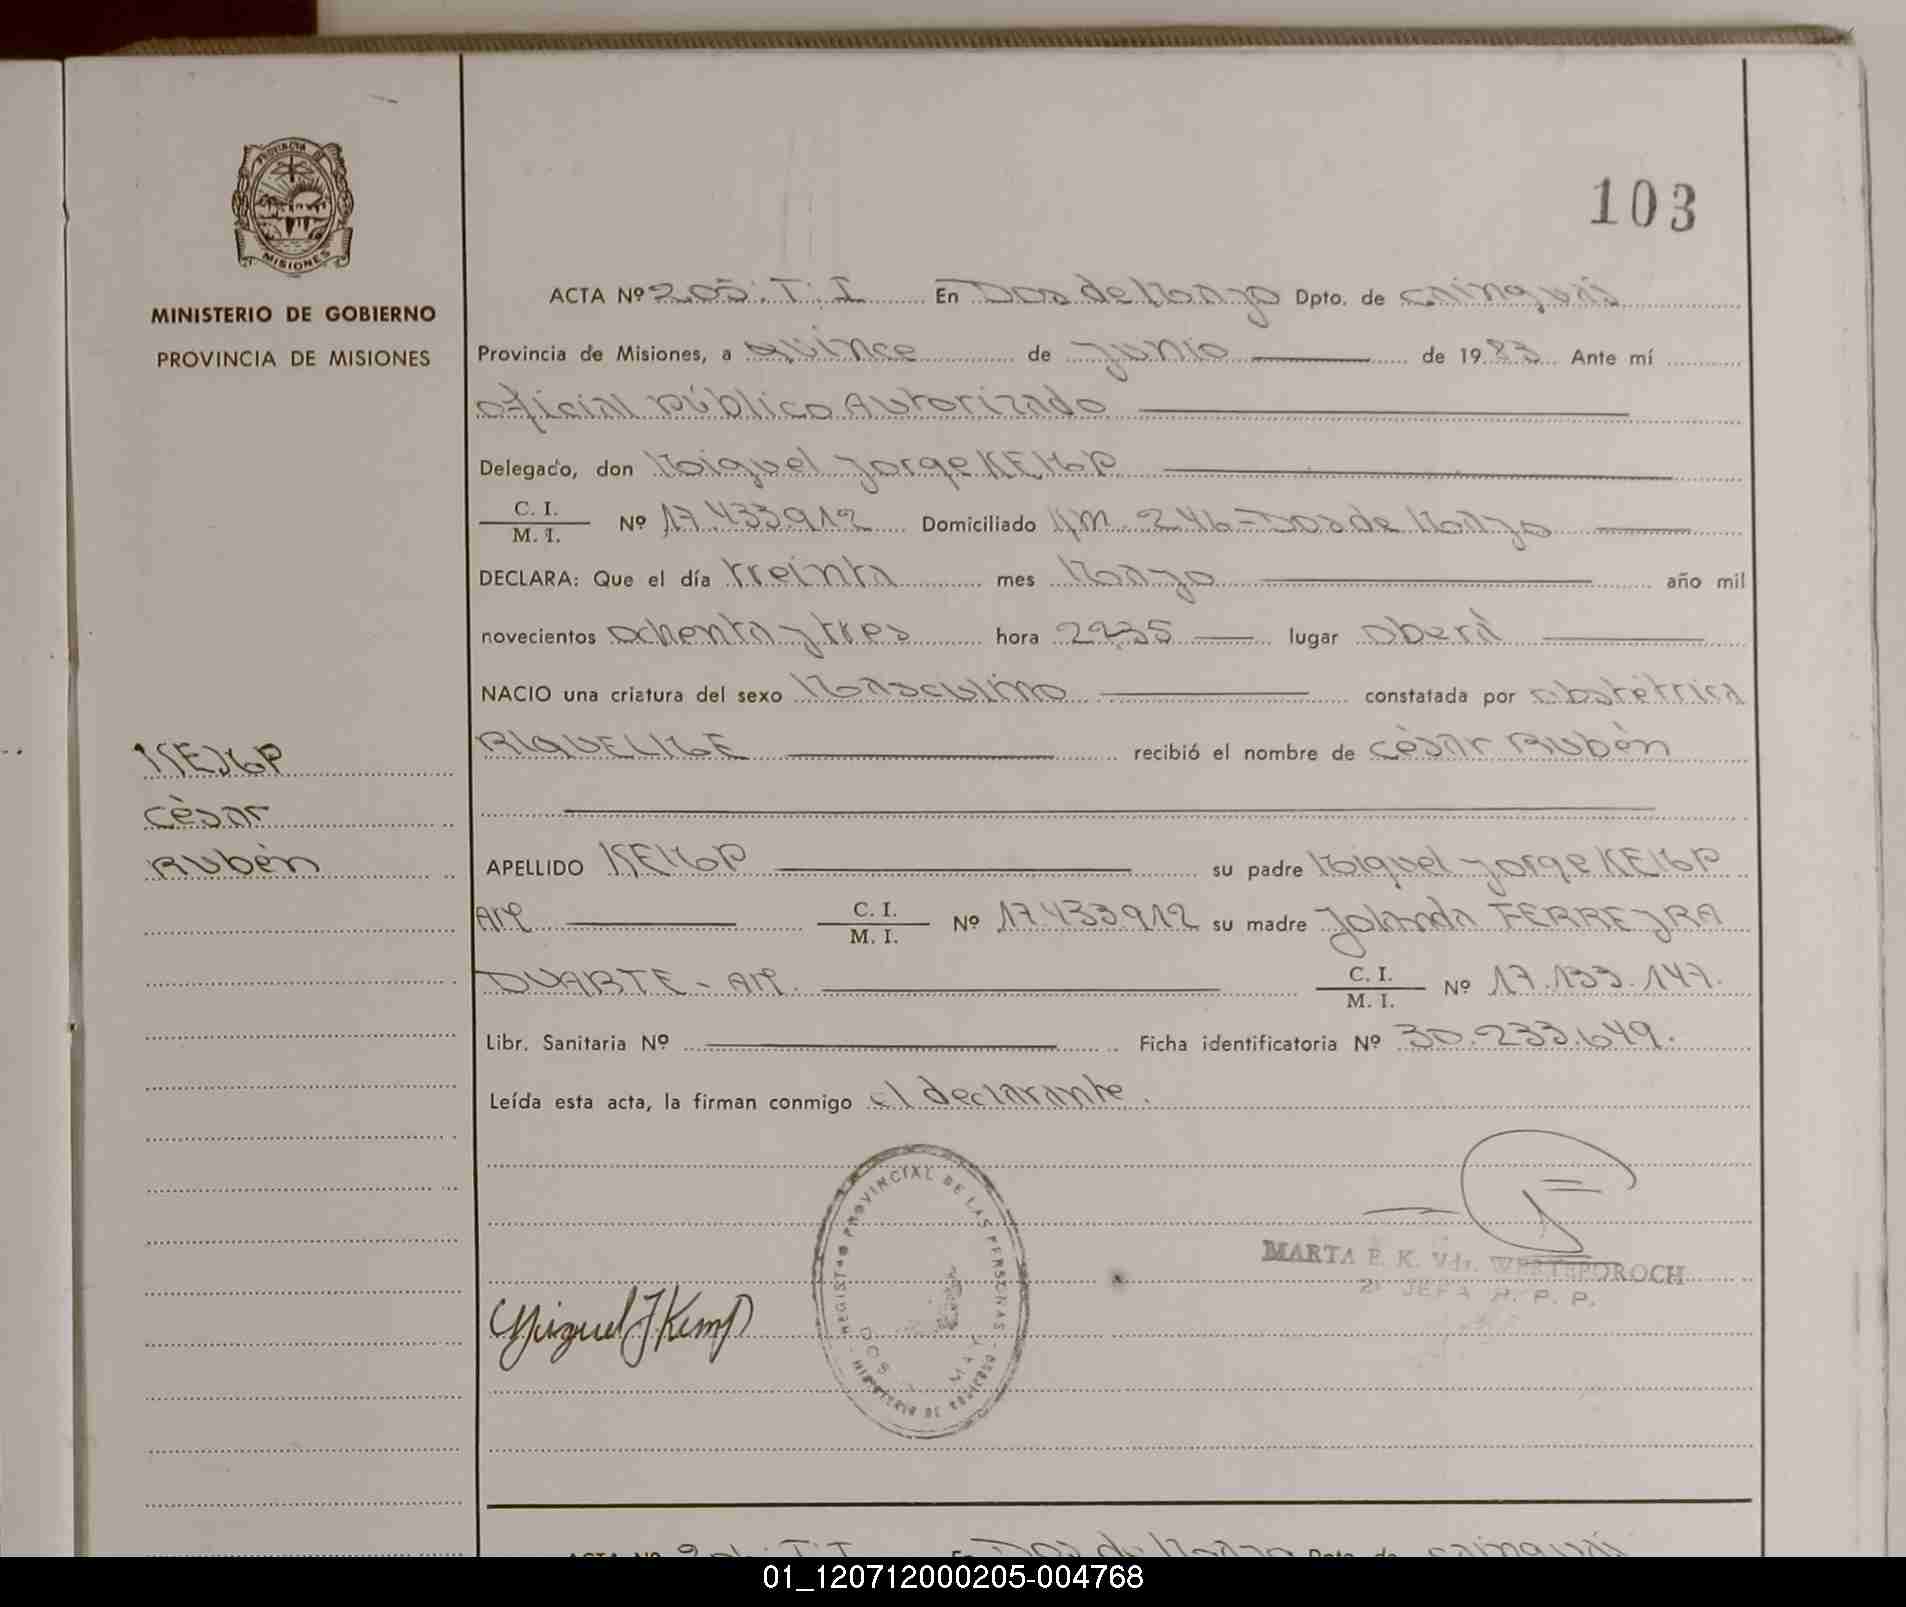 PROVINCIA DE
MISIONES
MINISTERIO DE GOBIERNO
PROVINCIA DE MISIONES
103
ACTA Nº 205. T. I En Dos de Mayo Dpto. de Cainguás
Provincia de Misiones, a quince de Junio de 1983 Ante mí
oficial público Autorizado
Delegado, don Miguel Jorge KEMP
C. I.
M. I. Nº 17.433.912 Domiciliado KM. 246 - Dos de Mayo
DECLARA: Que el día treinta mes Mayo año mil
novecientos ochenta y tres hora 2235 lugar oberá
NACIO una criatura del sexo Masculino constatada por obstétrica
RIQUELME recibió el nombre de Cèsar Rubèn
KEMP
Cèsar
Rubèn
APELLIDO KEMP su padre Miguel Jorge KEMP
Arg C. I.
M. I. Nº 17.433.912 su madre Jolanda FERREJRA
DUARTE - Arg. C. I.
M. I. Nº 17.133.147.
Libr. Sanitaria Nº Ficha identificatoria Nº 30.233.649.
Leída esta acta, la firman conmigo el declarante.
REGISTRO PROVINCIAL DE LAS PERSONAS
MINISTERIO DE GOBIERNO
MARTA E. K. Vda.
2ª JEFA R. P. P.
Miguel J Kemp
ACTA Nº 206. T. I En Dos de Mayo Dpto. de Cainguás
01_120712000205-004768